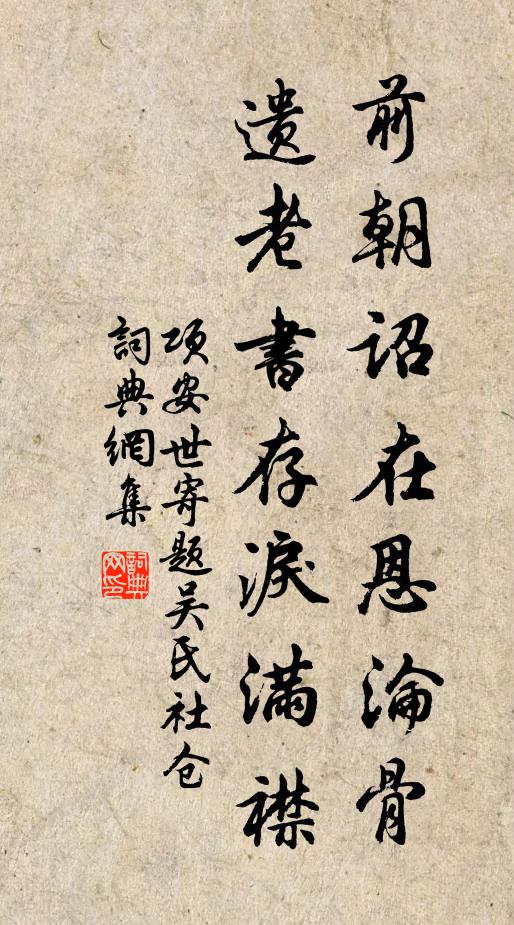 前朝詔在恩淪骨
遺老書存淚滿襟
项安世寄题吴氏社仓
詞典網集
詞典网印